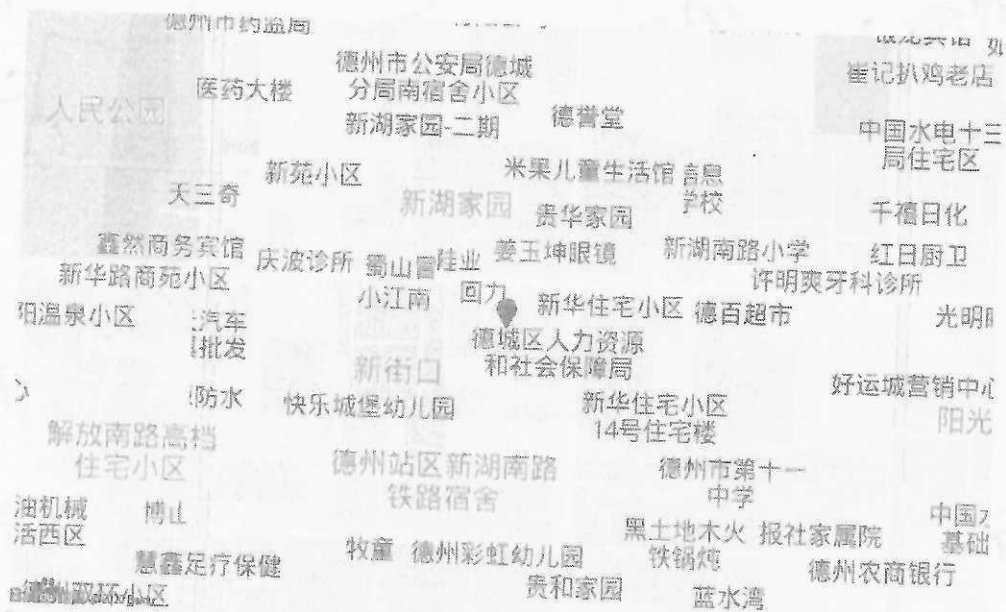 德州市药监局
德州市公安局德城
分局南宿舍小区
崔记扒鸡老店
医药大楼
人民公园
新湖家园-二期
德誉堂
中国水电十三
局住宅区
新苑小区
米果儿童生活馆
信息
学校
天三奇
新湖家园
贵华家园
千禧日化
鑫然商务宾馆
庆波诊所
蜀山
硅业
姜玉坤眼镜
新湖南路小学
红日厨卫
新华路商苑小区
许明爽牙科诊所
小江南
回力
阳温泉小区
汽车
批发
新华住宅小区
德百超市
光明
德城区人力资源
和社会保障局
新街口
好运城营销中心
防水
快乐城堡幼儿园
新华住宅小区
14号住宅楼
阳光
解放南路高档
住宅小区
德州站区新湖南路
铁路宿舍
德州市第十一
中学
油机械
活西区
博山
黑土地木火
铁锅炖
报社家属院
中国
基础
慧鑫足疗保健
牧童
德州彩虹幼儿园
德州农商银行
贵和家园
蓝水湾